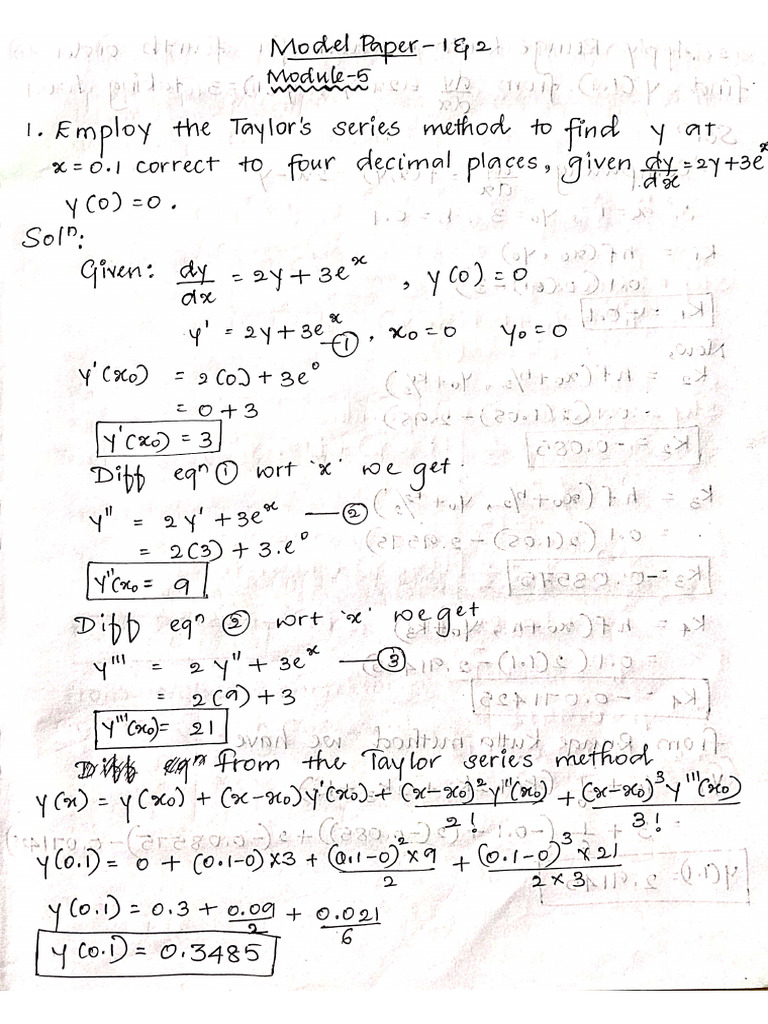 Model Paper - 1 & 2
Module-5
1. Employ the Taylor's series method to find y at
x = 0.1 correct to four decimal places, given dy/dx = 2y + 3e^x
y(0) = 0.
Solⁿ:
Given: dy/dx = 2y + 3e^x , y(0) = 0
y' = 2y + 3e^x —①, x₀ = 0 y₀ = 0
y'(x₀) = 2(0) + 3e⁰
= 0 + 3
y'(x₀) = 3
Diff eqⁿ ① wrt 'x' we get.
y'' = 2y' + 3e^x —②
= 2(3) + 3.e⁰
y''(x₀ = 9
Diff eqⁿ ② wrt 'x' we get
y''' = 2y'' + 3e^x —③
= 2(9) + 3
y'''(x₀) = 21
Diff eqⁿ from the Taylor series method
y(x) = y(x₀) + (x-x₀)y'(x₀) + (x-x₀)²y''(x₀)/2! + (x-x₀)³y'''(x₀)/3!
y(0.1) = 0 + (0.1-0)×3 + (0.1-0)²×9/2 + (0.1-0)³×21/2×3
y(0.1) = 0.3 + 0.09/2 + 0.021/6
y(0.1) = 0.3485